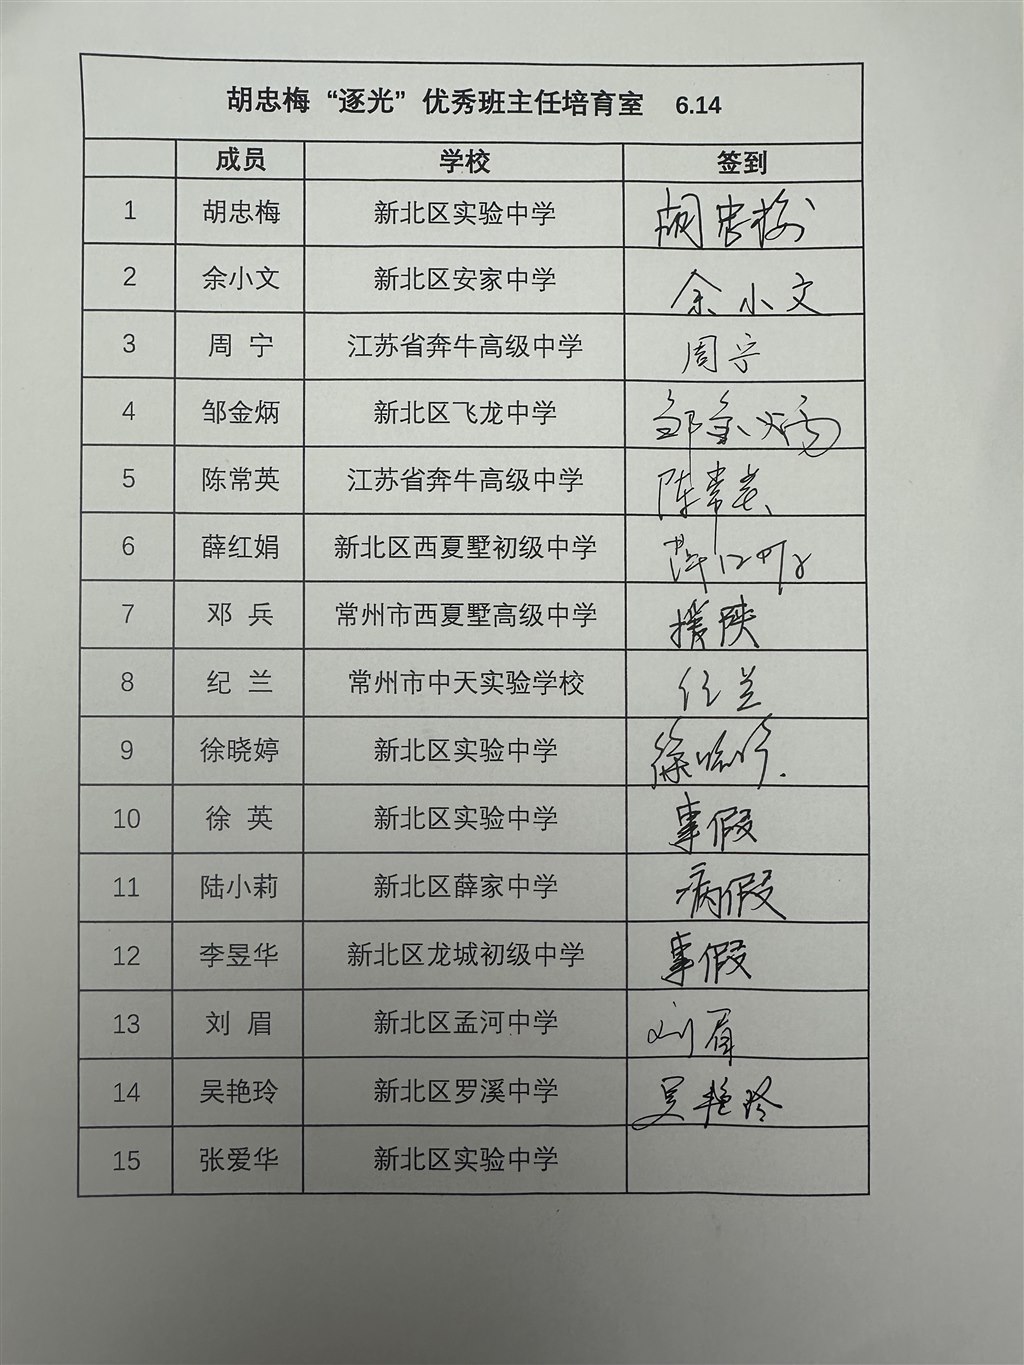 胡忠梅“逐光”优秀班主任培育室 6.14
成员 学校 签到
1 胡忠梅 新北区实验中学 胡忠梅
2 余小文 新北区安家中学 余小文
3 周 宁 江苏省奔牛高级中学 周宁
4 邹金炳 新北区飞龙中学 邹金炳
5 陈常英 江苏省奔牛高级中学 陈常英
6 薛红娟 新北区西夏墅初级中学 薛红娟
7 邓 兵 常州市西夏墅高级中学 援陕
8 纪 兰 常州市中天实验学校 纪兰
9 徐晓婷 新北区实验中学 徐晓婷
10 徐 英 新北区实验中学 事假
11 陆小莉 新北区薛家中学 病假
12 李昱华 新北区龙城初级中学 事假
13 刘 眉 新北区孟河中学 刘眉
14 吴艳玲 新北区罗溪中学 吴艳玲
15 张爱华 新北区实验中学